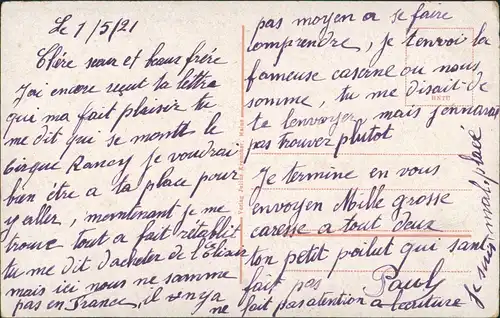 Le 1/5/21
Chère seur et beaux frére
J'ai encore reçut ta lettre
que ma fait plaisir tu
me dit qui se montt le
Cirque Rancy je voudrai
bien être a ta place pour
y aller, maintenant je me
trouve tout a fait rétablit
tu me dit d'acheter de l'Elixir
mais ici nous ne somme
pas en France, il vy a
ne
pas moyen a se faire
comprendre, je t'envoi la
fameuse caserne ou nous
somme, tu me disait de
te l'envoyer, mais j'en narai
pas trouver plutot
Je termine en vous
envoyen Mille grosse
caresse a tout deux
ton petit poilut qui san
fait pas Paul
fait pas atention a l'ecriture
je suis mal placé
Verlag Julius Mainz